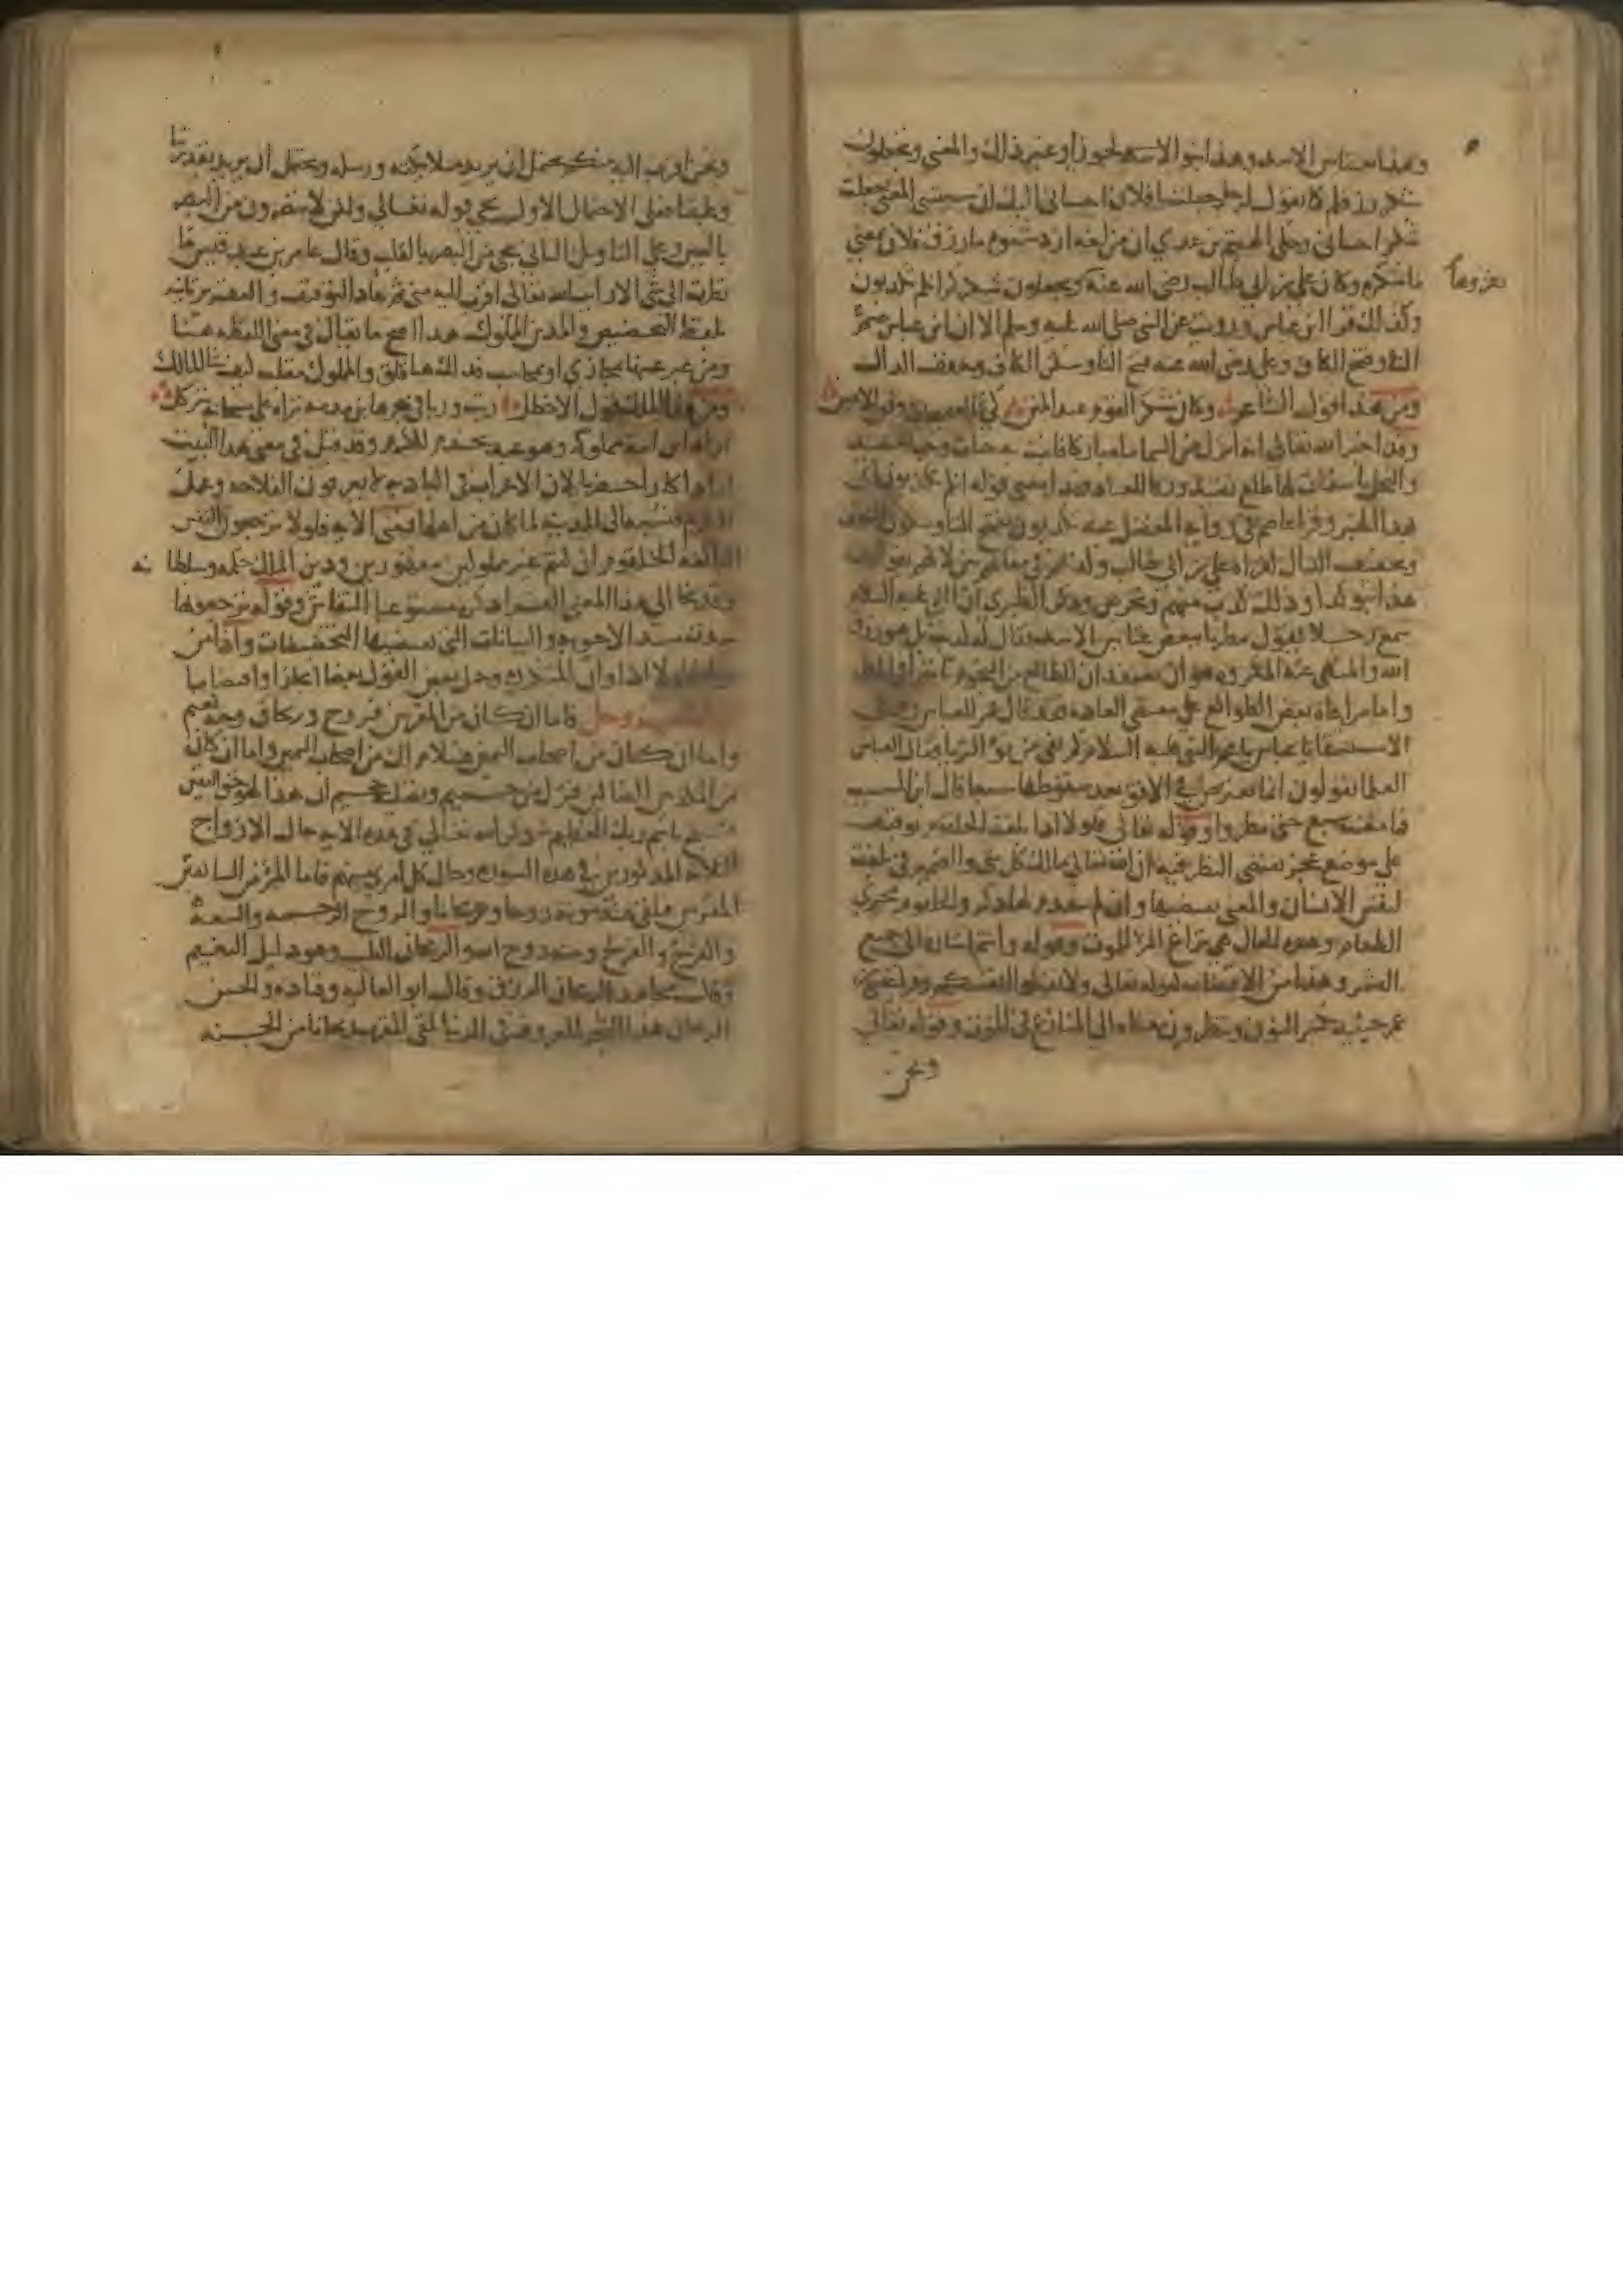 وهذا بعشاس الاسد وهذا بنوا الاسد لحوزا وغير ذلك والمعنى وتجعلون
شكر رزقكم كما تقول لرجل جعلت يا فلان احساني اليك ان سببتني المعنى جعلت
شكر احساني وحكى الهيثم بن عدي ان من لغة ازد شنوءة ما رزق فلان بمعنى
ما شكره وكان علي بن ابي طالب رضي الله عنه وتجعلون شكركم انكم تكذبون
يقرؤها
وكذلك قرا ابن عباس ورويت عن النبي صلى الله عليه وسلم الا ان ابن عباس ضم
التاء وفتح الكاف وعلي رضي الله عنه فتح التا وسكن الكاف وخفف الذال
ومن هذا قول الشاعر وكان شكر القوم عند المنن كي الصحيحات وفق الاعين
وقد اخبر الله تعالى انه انزل من السما ما مباركا فانبت به جنات وحب الحصيد
والنخل باسقات لها طلع نضيد رزقا للعباد فهذا معنى قوله انكم تكذبون اي
بهذا الخبر وقرا عاصم في رواية المفضل عنه تكذبون بفتح التا وسكون الكاف
وتخفيف الذال كقراءة علي بن ابي طالب وكذبهم في مقالتهم بين لانهم يقولون
هذا بنو كذا وذلك كذب منهم وتخرص وذكر الطبري ان النبي عليه السلام
سمع رجلا يقول مطرنا ببعض عثانين الاسد فقال له كذبت بل هو رزق
الله والمنهي عنه المكروه هو ان يعتقد ان للطالع من النجوم تاثيرا في المطر
واما مراعاة بعض الطوالع على مقتضى العادة فقد قال عمر للعباس وهما في
الاستسقا يا عباس يا عم النبي عليه السلام كم بقي من نو الثريا فقال العباس
العلما يقولون انها تعترض في الافق بعد سقوطها سبعا قال ابن المسيب
فما مضت سبع حتى مطروا وقوله تعالى فلولا اذا بلغت الحلقوم توقيف
على موضع عجز يقتضي النظر فيه ان الله تعالى مالك كل شي والضمير في بلغت
لنفس الانسان والمعنى يقتضيها وان لم يتقدم لها ذكر والحلقوم مجرى
الطعام وهذه الحال هي نزاع المرء للموت وقوله وانتم اشارة الى جميع
البشر وهذا من الاقتضاب كقوله تعالى ولا تقتلوا انفسكم وقرا عيسى بن
عمر حينئذ بكسر النون وتنظرون معناه الى المنازع في الموت وقوله تعالى
ونحن
ونحن اقرب اليه منكم يحتمل ان يريد ملائكته ورسله ويحتمل ان يريد بقدرتنا
وغلبتنا فعلى الاحتمال الاول يجي قوله تعالى ولكن لا تبصرون من البصر
بالعين وعلى التاويل الثاني يجي من البصر بالقلب وقال عامر بن عبد قيس ما
نظرت الى شي الا رايت الله تعالى اقرب اليه مني ثم عاد التوقيف والتقرير ثانية
بلفظ التحضيض والمدين المملوك هذا اصح ما يقال في معنى اللفظة هنا
ومن عبر عنها بمجازى او محاسب فذلك هنا قلق والمملوك مقلب كيف شا المالك
ومن هذا الملك قول الاخطل ربت وربا في حجرها ابن مدينة تراه على مسحاته يتركل
اراد ابن امة مملوكة وهو عبد يخدم الكرم وقد قيل في معنى هذا البيت
اراد اكارا حضريا لان الاعراب في البادية لا يعرفون الفلاحة وعمل
الكرم فنسبه الى المدينة لما كان من اهلها فمعنى الاية فلولا ترجعون النفس
البالغة الحلقوم ان كنتم غير مملوكين مقهورين ودين الملك حكمه وسلطانه
وقد نحا الى هذا المعنى الفرا وذكره مستوعبا النقاش وقوله ترجعونها
سدت مسد الاجوبة والبيانات التي تقتضيها التحضيضات واذا من
قوله فلولا اذا وان المتكررة وحمل بعض القول بعضا ايجازا واقتضابا
قوله عز وجل فاما ان كان من المقربين فروح وريحان وجنة نعيم
واما ان كان من اصحاب اليمين فسلام لك من اصحاب اليمين واما ان كان
من المكذبين الضالين فنزل من حميم وتصلية جحيم ان هذا لهو حق اليقين
فسبح باسم ربك العظيم ذكر الله تعالى في هذه الاية حال الازواج
الثلاثة المذكورين في هذه السورة وحال كل امرئ منهم فاما المرء من السابقين
المقربين فيلقى عند موته روحا وريحانا والروح الرحمة والسعة
والفرج والفرح ومنه روح الله والريحان الطيب وهو دليل النعيم
وقال مجاهد الريحان الرزق وقال ابو العالية وقتادة والحسن
الريحان هذا الشجر المعروف في الدنيا يلقى المقرب ريحانا من الجنة